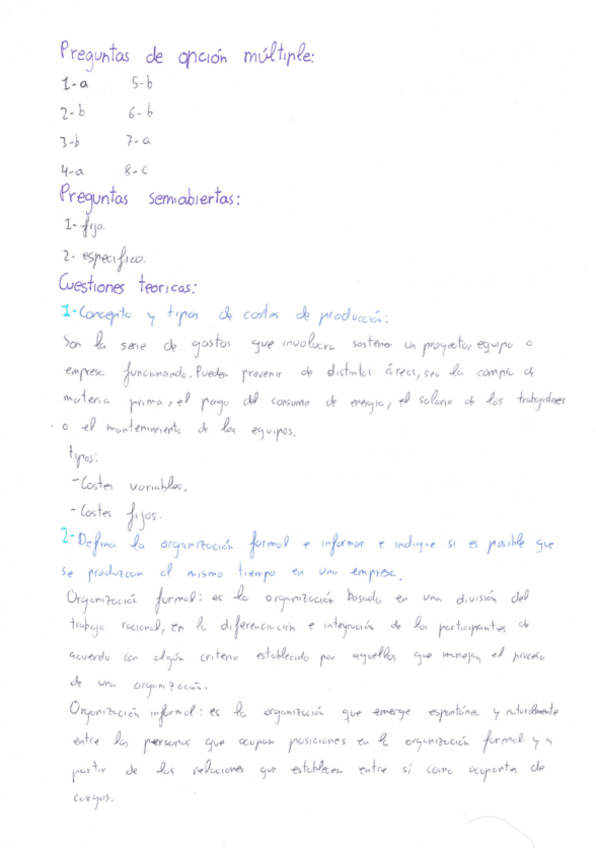 Preguntas de opción múltiple:
1-a 5-b
2-b 6-b
3-b 7-a
4-a 8-c
Preguntas semiabiertas:
1- fijo.
2- especifico.
Cuestiones teoricas:
1-Concepto y tipos de costes de producción:
Son la serie de gastos que involucra sostener un proyecto, equipo o
empresa funcionando. Pueden provenir de distintas áreas, sea la compra de
materia prima, el pago del consumo de energía, el salario de los trabajadores
o el mantenimiento de los equipos.
tipos:
-Costes variables.
-Costes fijos.
2-Defina la organización formal e informar e indique si es posible que
se produzcan al mismo tiempo en una empresa.
Organización formal: es la organización basada en una división del
trabajo racional, en la diferenciación e integración de los participantes de
acuerdo con algún criterio establecido por aquellos que manejan el proceso
de una organización.
Organización informal: es la organización que emerge espontánea y naturalmente
entre las personas que ocupan posiciones en la organización formal y a
partir de las relaciones que establecen entre sí como ocupantes de
cargos.